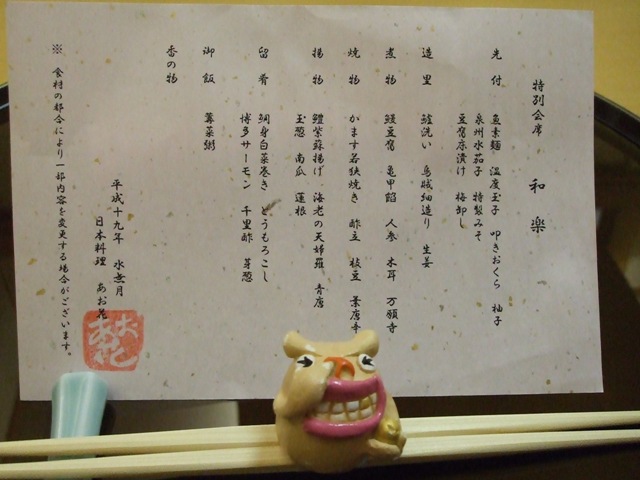 特別会席 和樂
先付 魚素麺 温度玉子 叩きおくら 柚子
泉州水茄子 特製みそ
豆腐床漬け 梅卸し
造里 鱸洗い 烏賊細造り 生姜
煮物 鰻豆腐 亀甲餡 人参 木耳 万願寺
焼物 かます若狭焼き 酢立 枝豆 葉唐辛
揚物 鱧紫蘇揚げ 海老の天婦羅 青唐
玉葱 南瓜 蓮根
留肴 鯛身白菜巻き とうもろこし
博多サーモン 千里酢 芽葱
御飯 蓴菜粥
香の物
平成十九年 水無月
日本料理 あお花
※ 食材の都合により一部内容を変更する場合がございます。
あお花